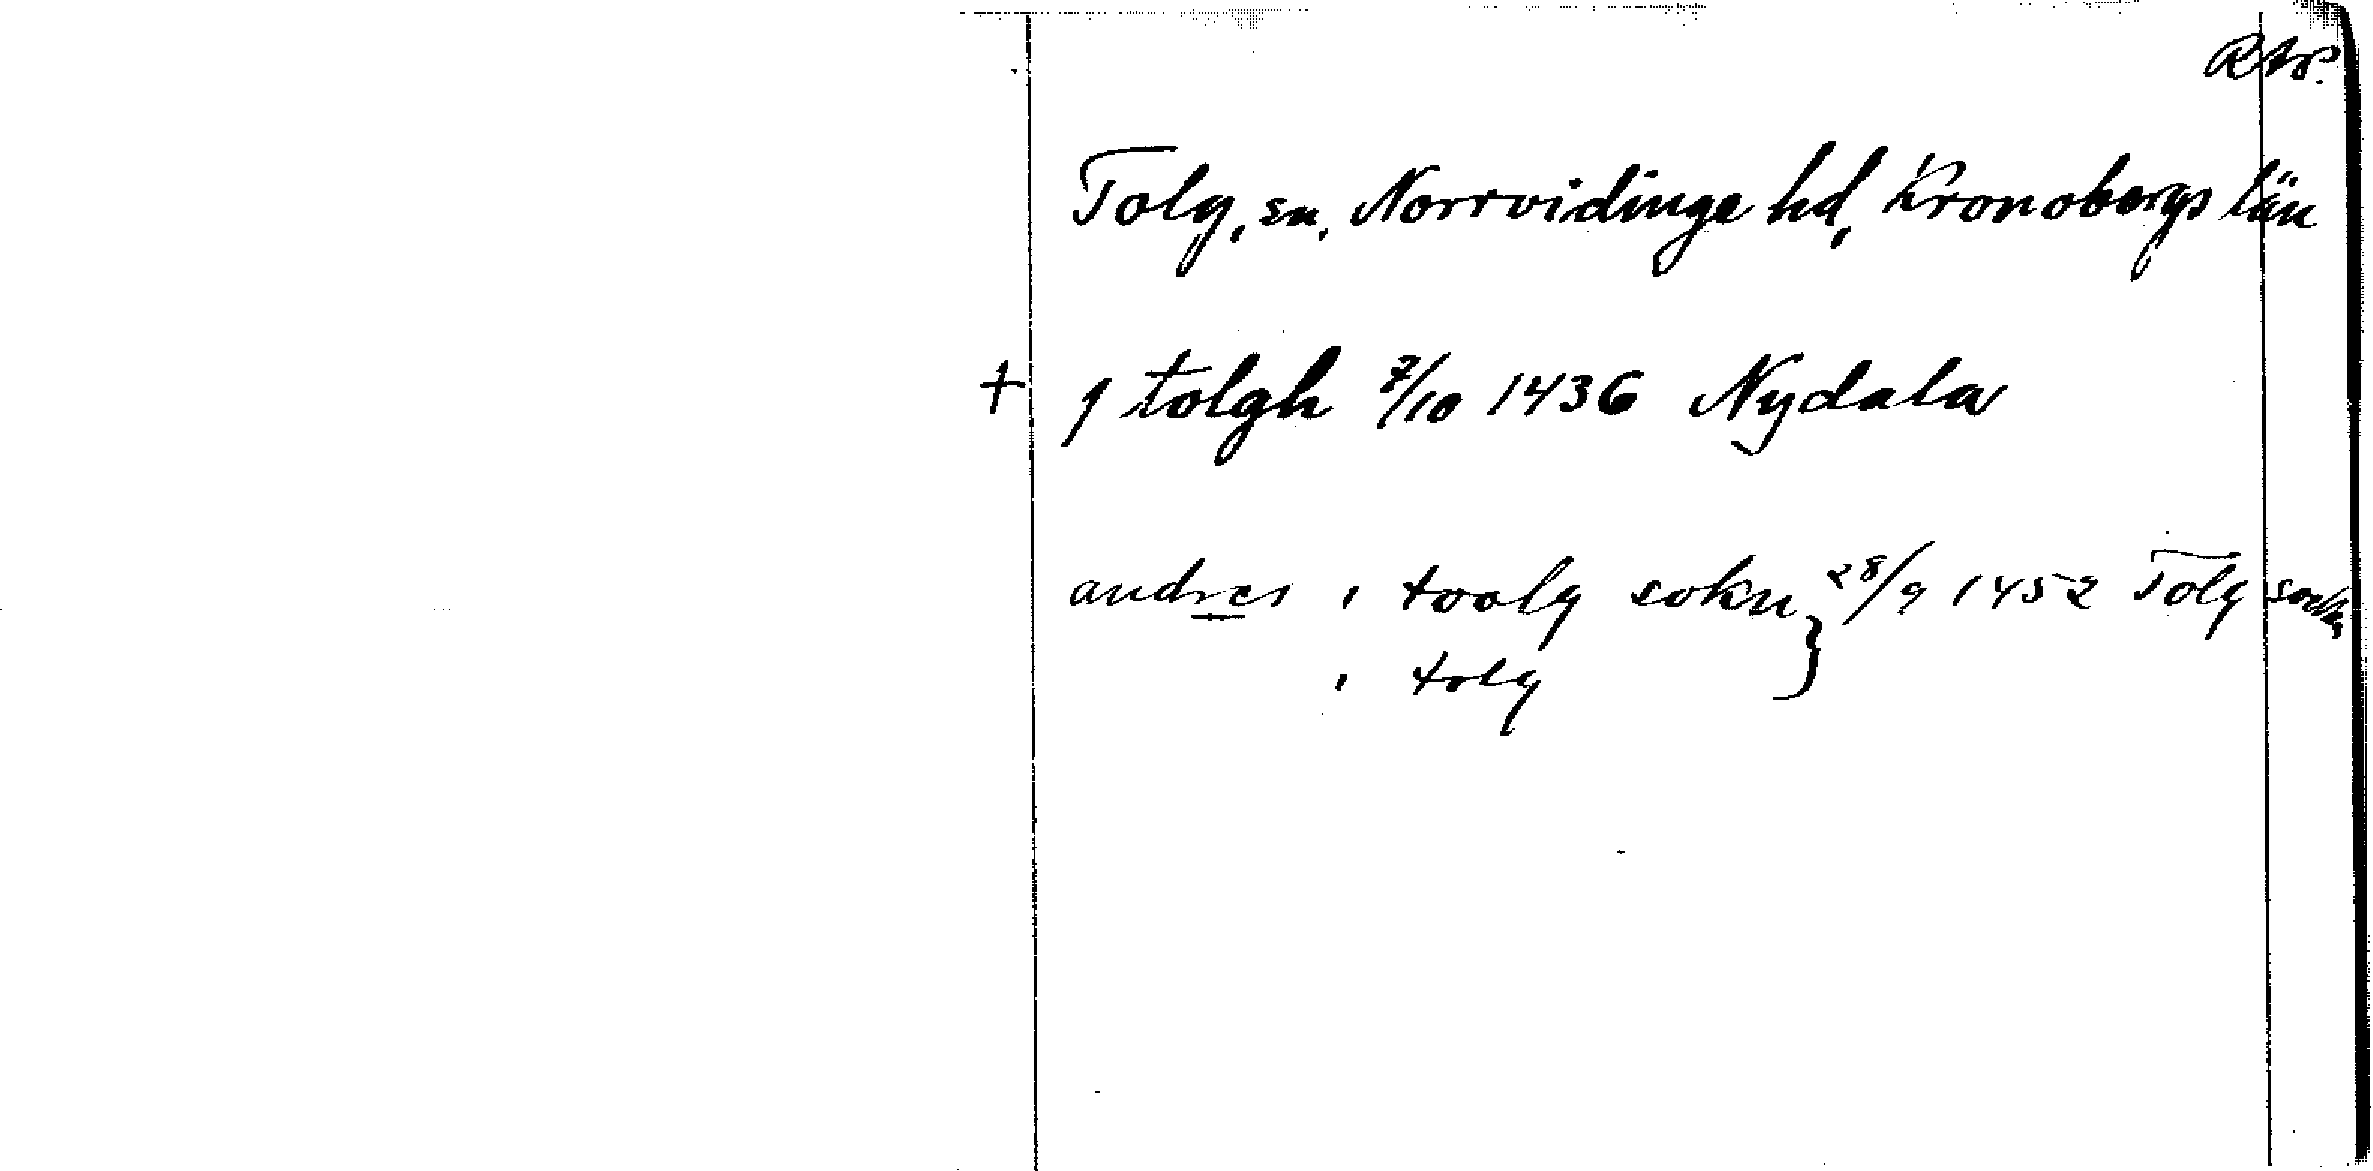 Tolg, sn, Norrvidinge hd, Kronobergs län
+ j tolgh 7/10 1436 Nydala
andres i toolg sokn } 28/9 1452 Tolg sockn
i tolg